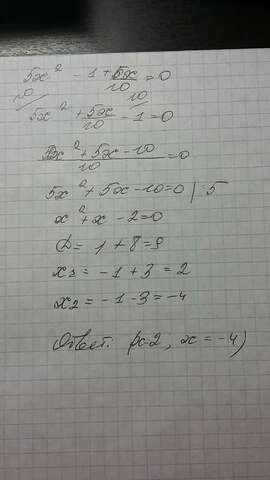 5x² - 1 + 5x/10 = 0
10/ 10/
5x² + 5x/10 - 1 = 0
5x² + 5x - 10/10 = 0
5x² + 5x - 10 = 0 | 5
x² + x - 2 = 0
D = 1 + 8 = 9
x1 = -1 + 3 = 2
x2 = -1 - 3 = -4
Ответ: (x-2; x = -4)